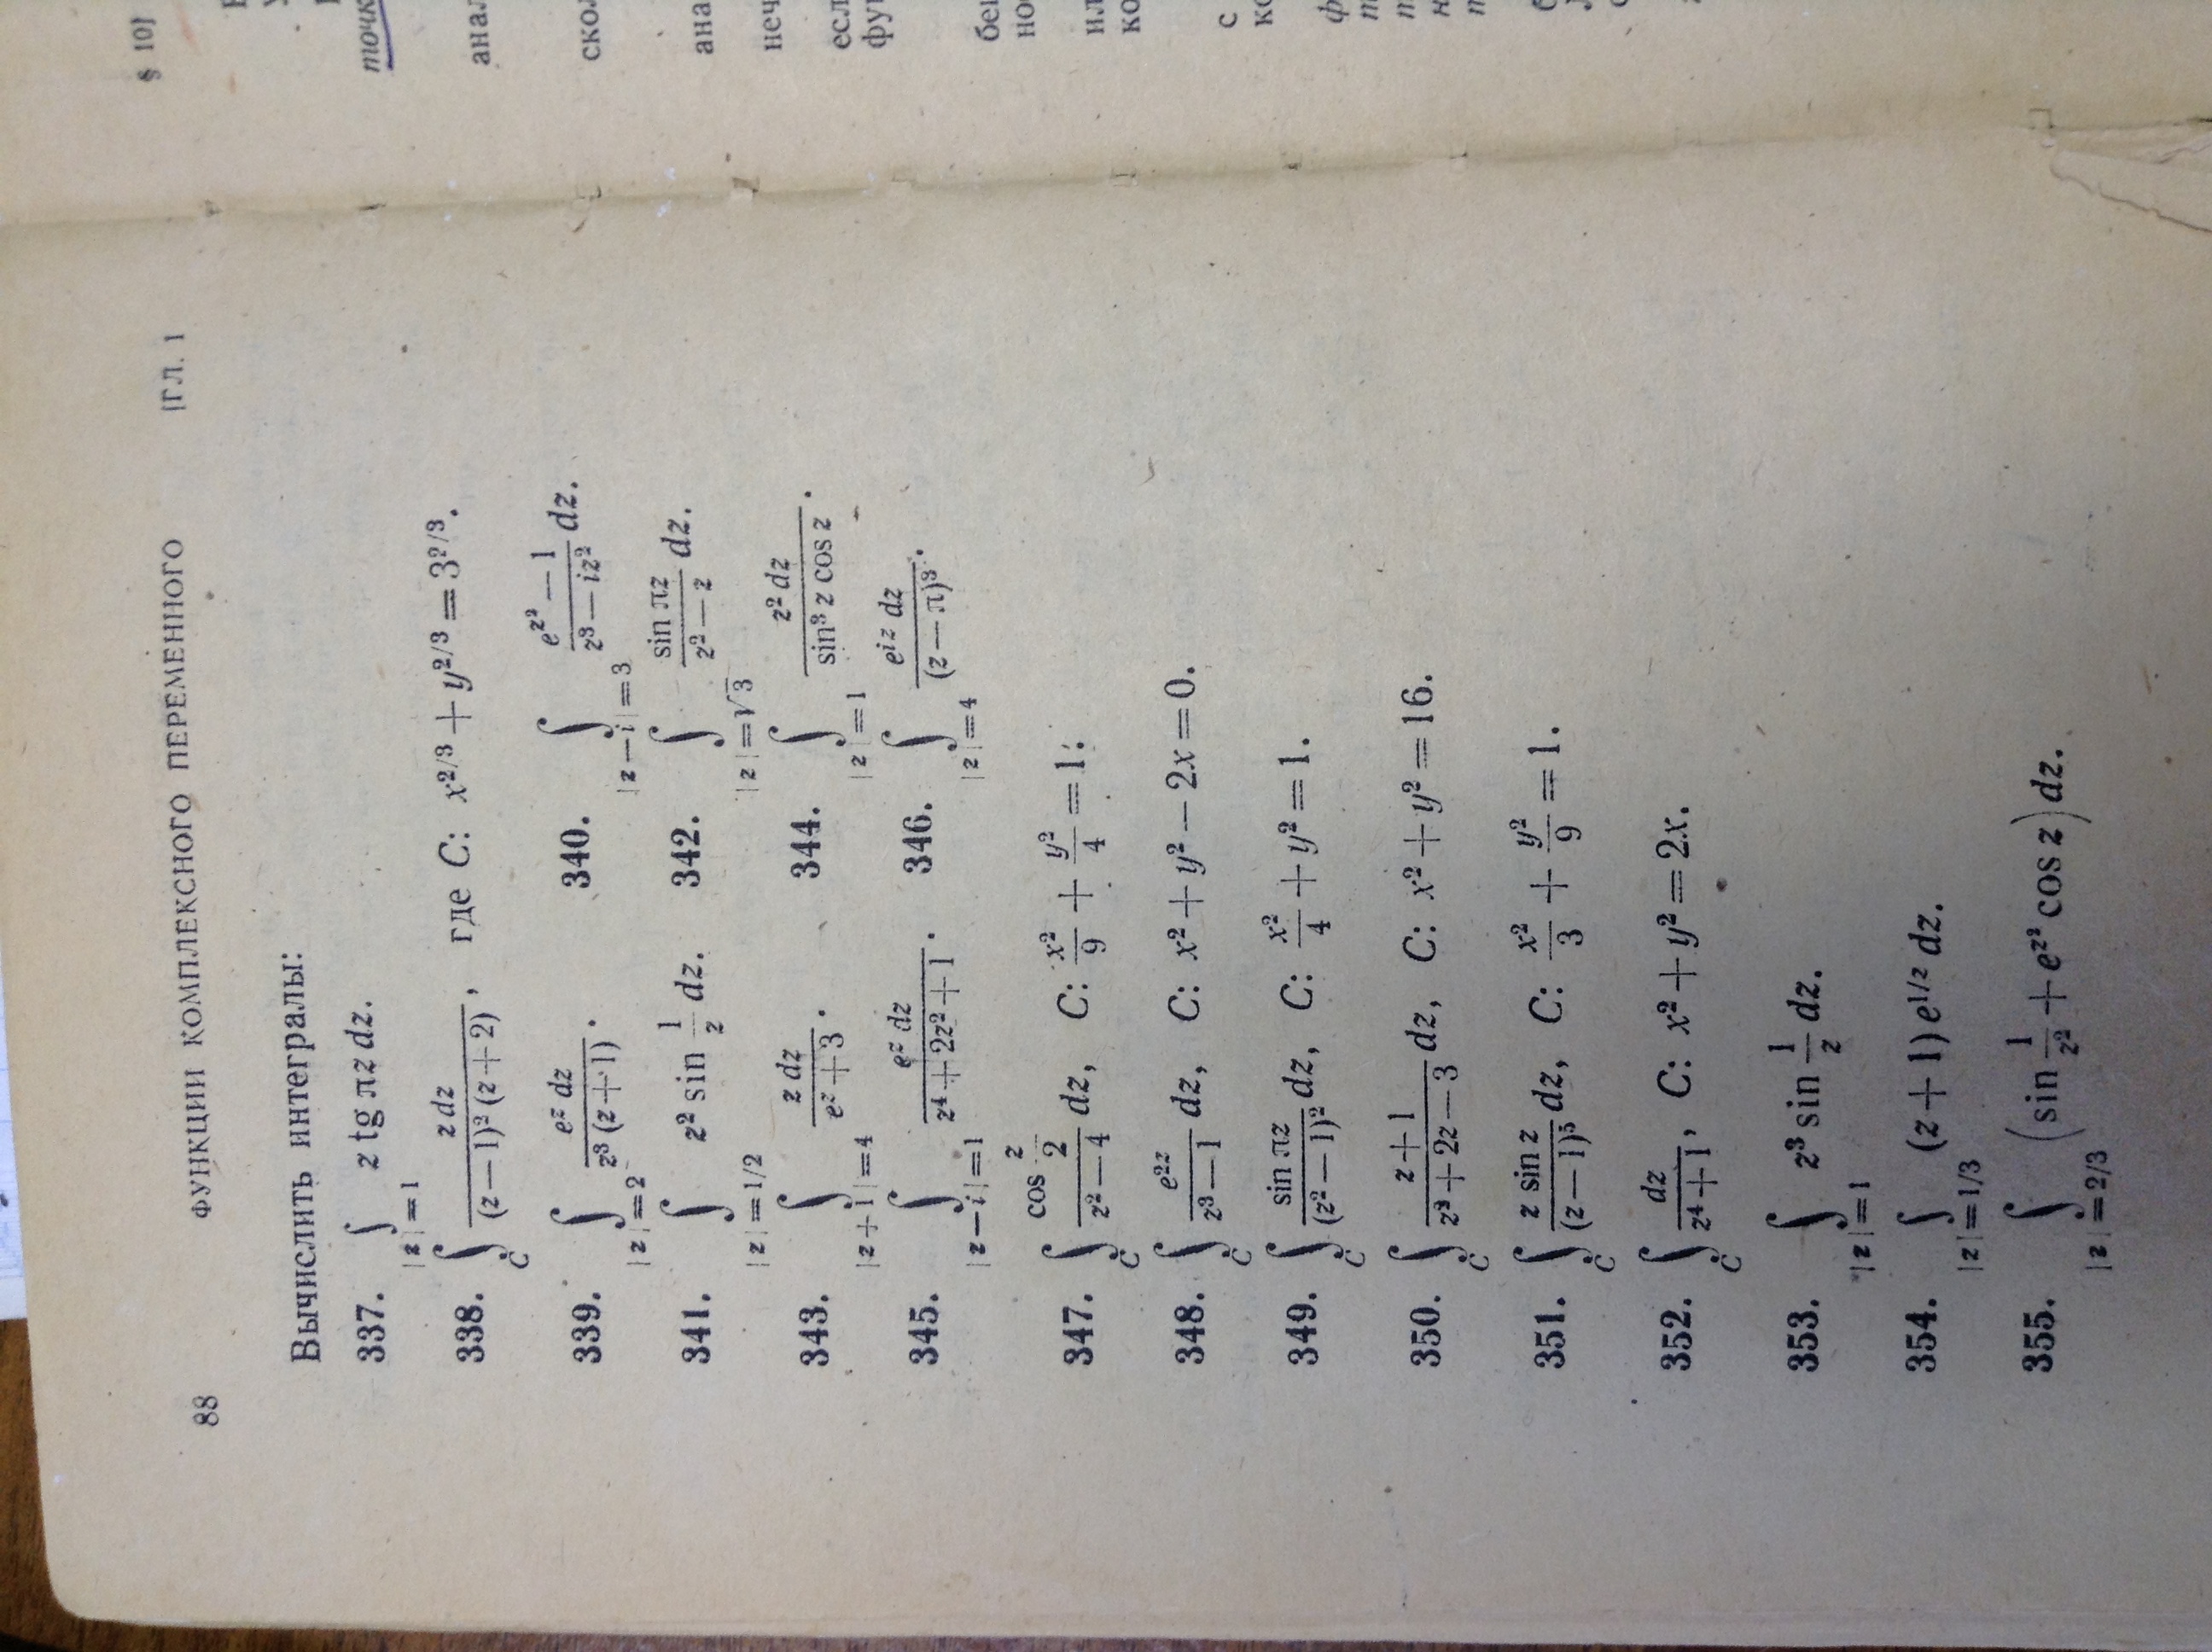 88 ФУНКЦИИ КОМПЛЕКСНОГО ПЕРЕМЕННОГО [ГЛ. 1
Вычислить интегралы:
337. ∫_{|z|=1} z tg πz dz.
338. ∫_C z dz / ((z−1)²(z+2)), где C: x^{2/3} + y^{2/3} = 3^{2/3}.
339. ∫_{|z|=2} e^z dz / (z³(z+1)). 340. ∫_{|z−i|=3} (e^{z²} − 1) / (z³ − iz²) dz.
341. ∫_{|z|=1/2} z² sin 1/z dz. 342. ∫_{|z|=√3} sin πz / (z² − z) dz.
343. ∫_{|z+1|=4} z dz / (e^z + 3). 344. ∫_{|z|=1} z² dz / (sin³ z cos z).
345. ∫_{|z−i|=1} e^z dz / (z⁴ + 2z² + 1). 346. ∫_{|z|=4} e^{iz} dz / (z − π)³.
347. ∫_C cos z/2 / (z² − 4) dz, C: x²/9 + y²/4 = 1.
348. ∫_C e^{2z} / (z³ − 1) dz, C: x² + y² − 2x = 0.
349. ∫_C sin πz / (z² − 1)² dz, C: x²/4 + y² = 1.
350. ∫_C (z + 1) / (z³ + 2z − 3) dz, C: x² + y² = 16.
351. ∫_C z sin z / (z − 1)⁵ dz, C: x²/3 + y²/9 = 1.
352. ∫_C dz / (z⁴ + 1), C: x² + y² = 2x.
353. ∫_{|z|=1} z³ sin 1/z dz.
354. ∫_{|z|=1/3} (z + 1) e^{1/z} dz.
355. ∫_{|z|=2/3} (sin 1/z² + e^{z²} cos z) dz.
§ 10]
точк
анал
скол
ана
неч
есл
фун
бе
но
ил
ко
с
ко